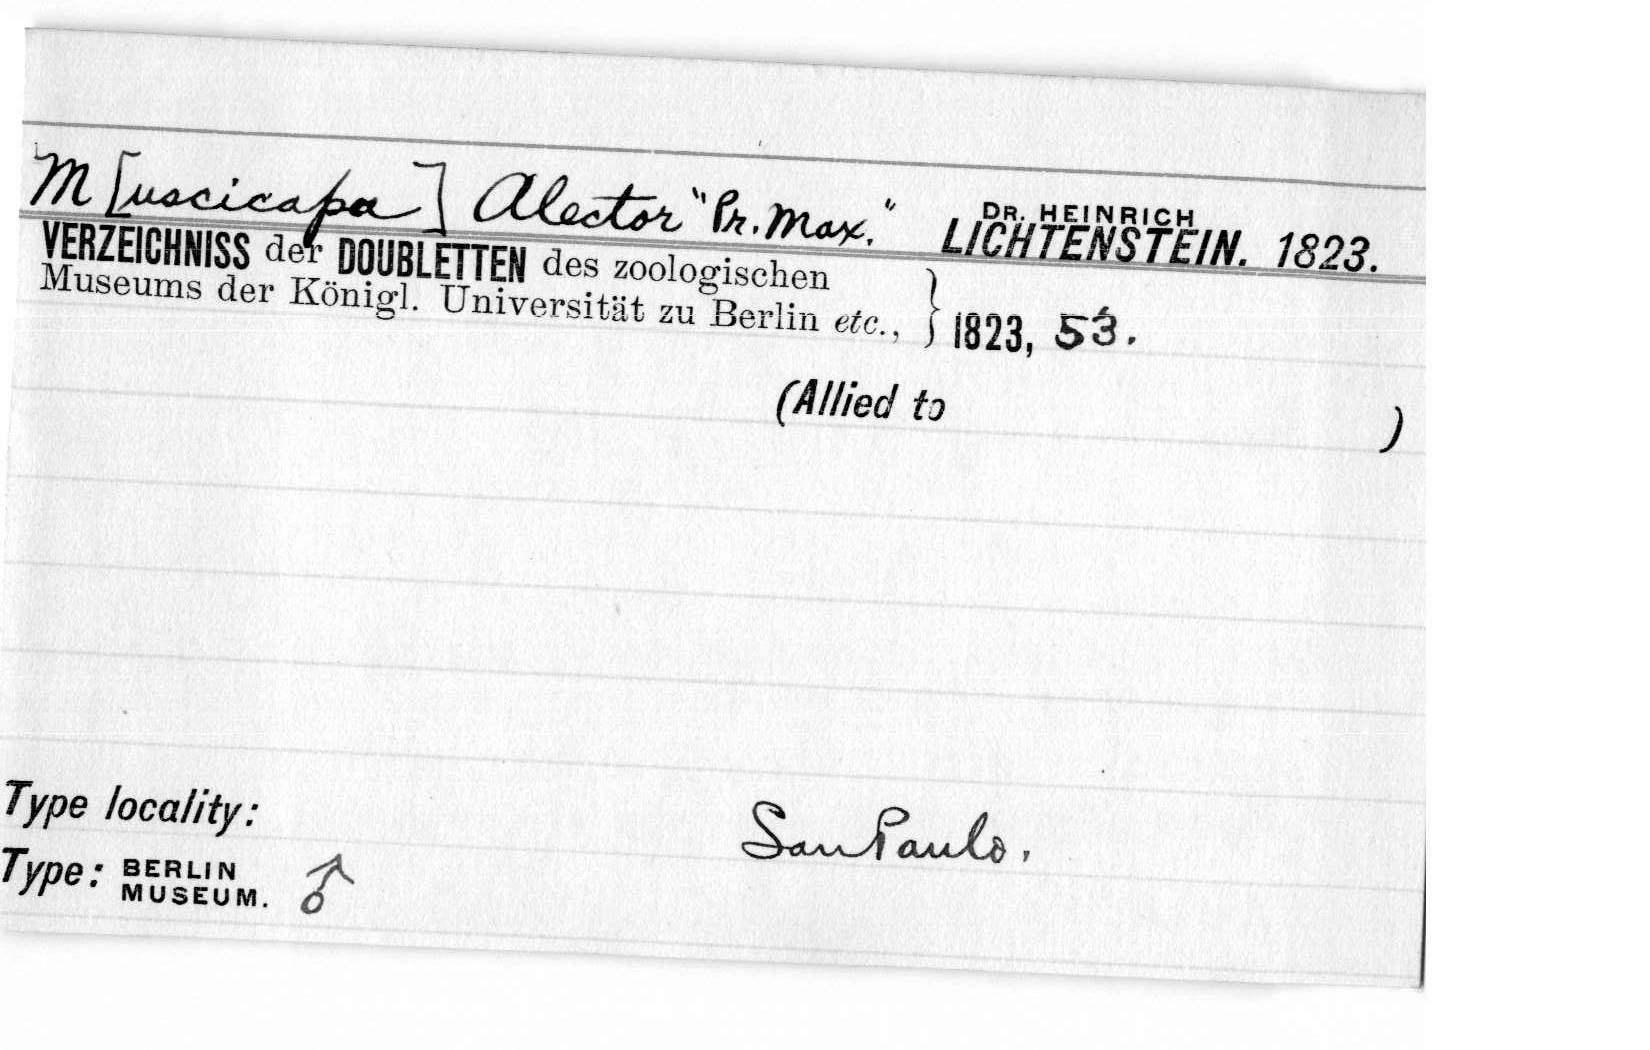 M[uscicapa] Alector "Pr. Max." DR. HEINRICH LICHTENSTEIN. 1823.
VERZEICHNISS der DOUBLETTEN des zoologischen
Museums der Königl. Universität zu Berlin etc., } 1823, 53.
(Allied to )
Type locality: San Paulo.
Type: BERLIN MUSEUM. ♂